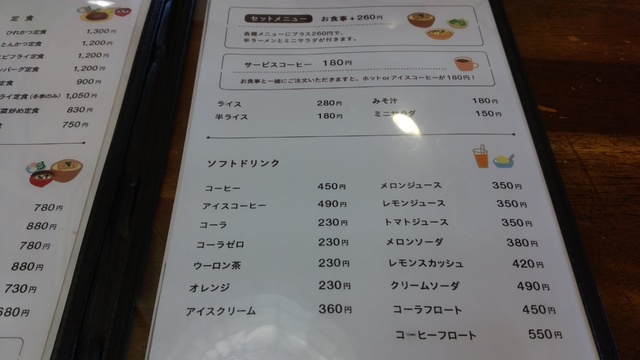 定食
ひれかつ定食 1,300円
とんかつ定食 1,200円
ビフライ定食 1,200円
ンバーグ定食 1,200円
定食 900円
ライ定食(冬季のみ) 1,050円
菜炒め定食 830円
定食 750円
780円
880円
780円
880円
730円
680円
セットメニュー お食事+260円
各種メニューにプラス260円で、
半ラーメンとミニサラダが付きます。
サービスコーヒー 180円
お食事と一緒にご注文いただきますと、ホットorアイスコーヒーが180円!
ライス 280円 みそ汁 180円
半ライス 180円 ミニサラダ 150円
ソフトドリンク
コーヒー 450円 メロンジュース 350円
アイスコーヒー 490円 レモンジュース 350円
コーラ 230円 トマトジュース 350円
コーラゼロ 230円 メロンソーダ 380円
ウーロン茶 230円 レモンスカッシュ 420円
オレンジ 230円 クリームソーダ 490円
アイスクリーム 360円 コーラフロート 450円
コーヒーフロート 550円